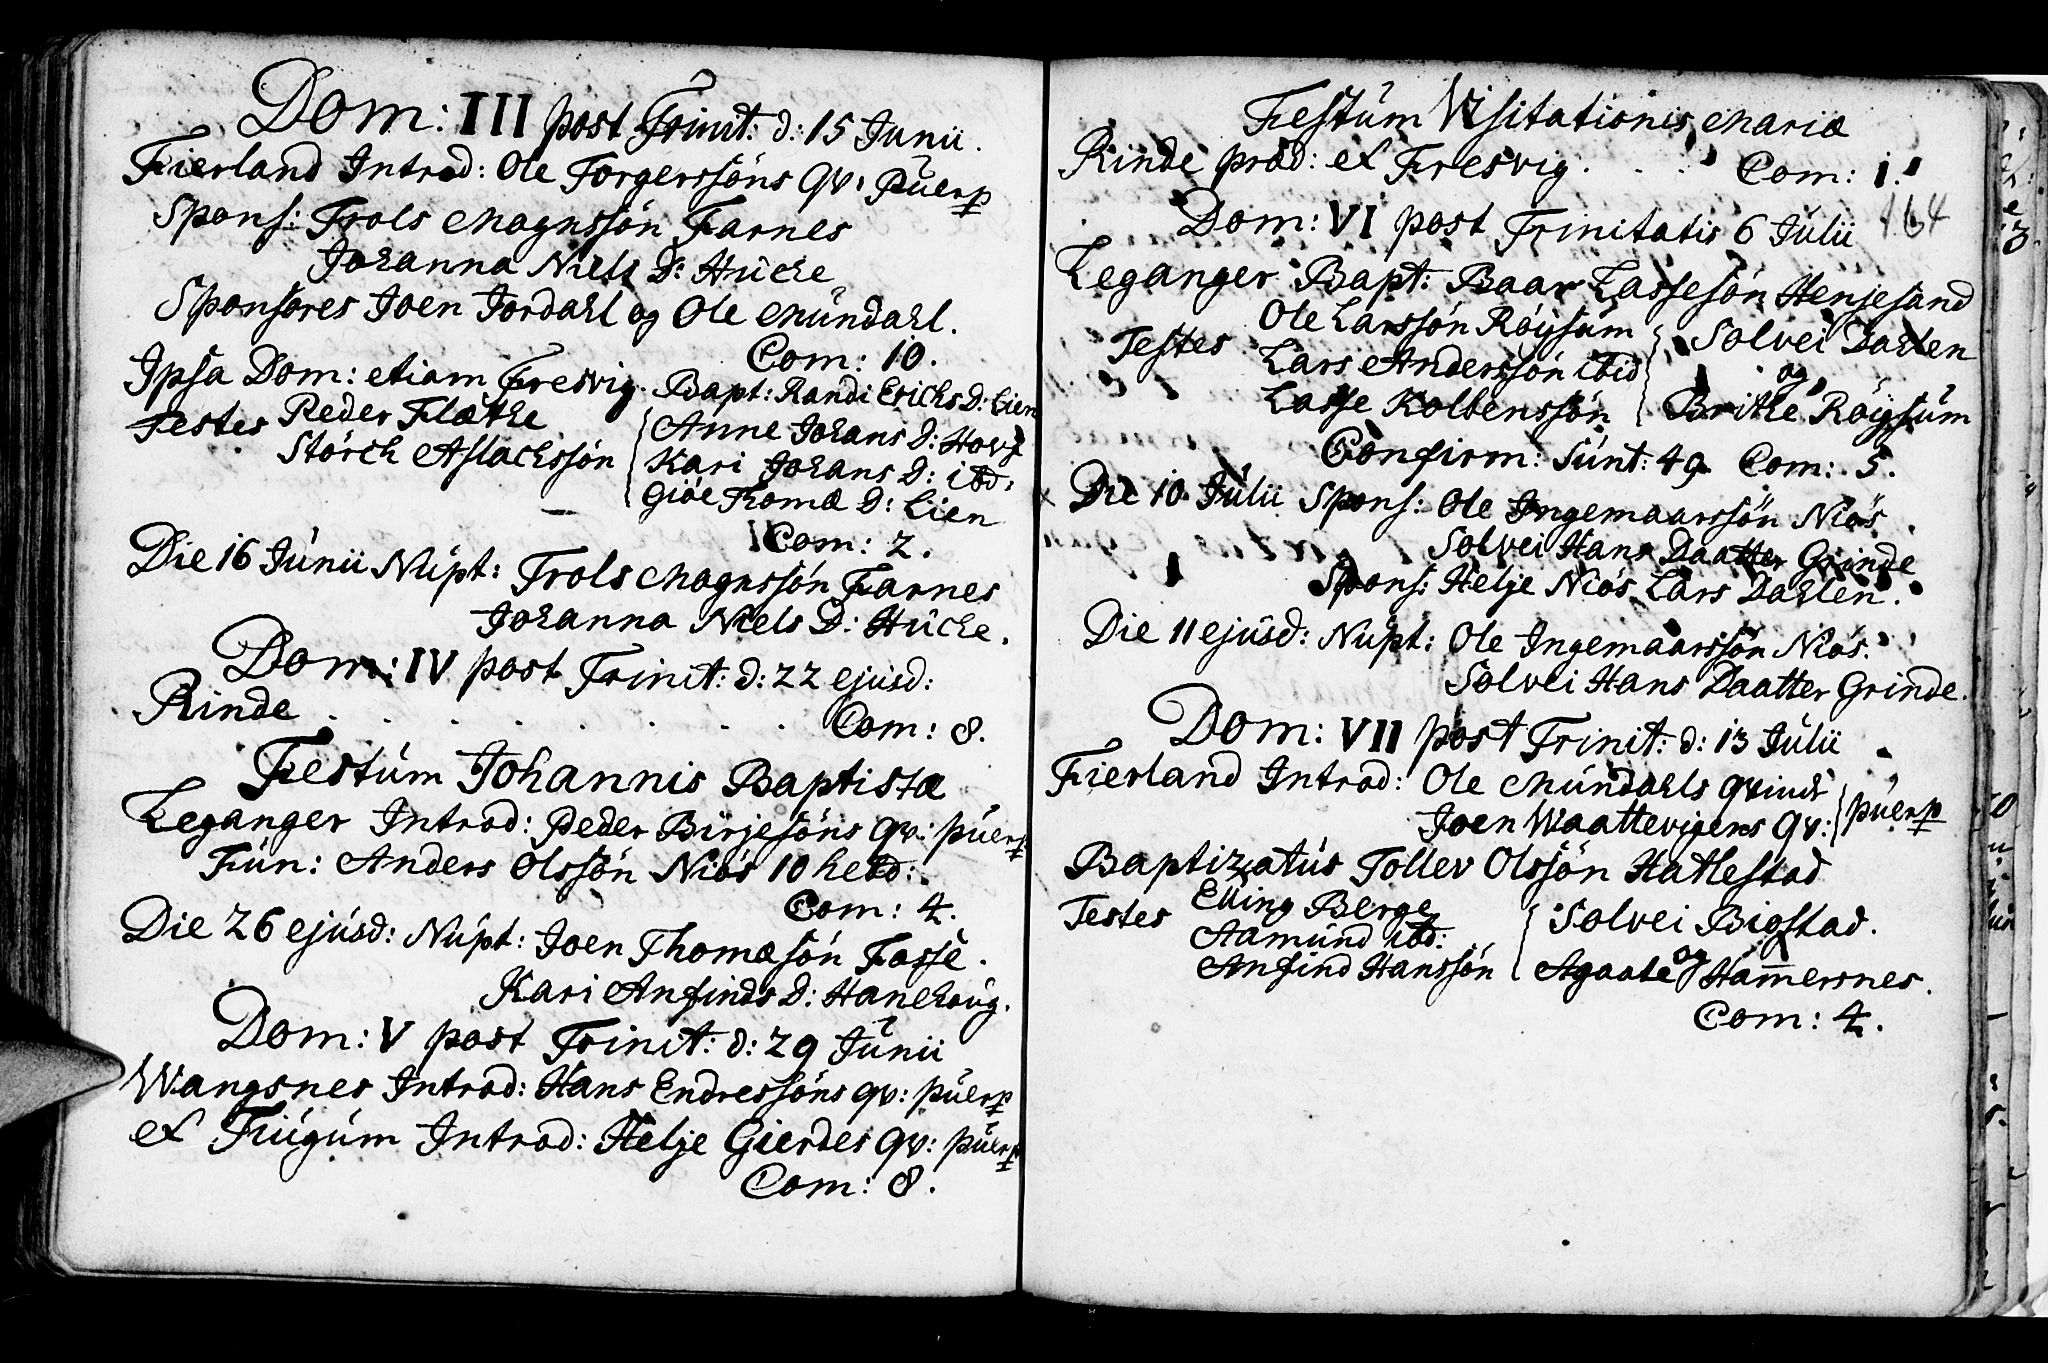 Dom: III post Trinit: d: 15 Junii.
Fierland Introd: Ole Torgerssöns qv: Puerp
Spons: Trols Magnssön Farnes
Johanna Niels D: Huche
Sponsores Joen Jordahl og Ole Mundahl.
Com: 10.
Ipsa Dom: etiam Fresvig. Bapt: Randi Erichs D: Lien
Testes Peder Flæthe { Anne Johans D: Hove
Störch Aslachssön Kari Johans D: ibd:
Giöe Thomæ D: Lien
Com: 2.
Die 16 Junii Nupt: Trols Magnssön Farnes
Johanna Niels D: Huche.
Dom: IV post Trinit: d: 22 ejusd:
Rinde . . . . . . . . Com: 8.
Festum Johannis Baptistæ
Leganger Introd: Peder Birjesöns qv: puerp
Fun: Anders Olssön Niös 10 hebd:
Com: 4.
Die 26 ejusd: Nupt: Joen Thomæsön Fosse.
Kari Anfinds D: Hanehoug.
Dom: V post Trinit: d: 29 Junii
Wangsnes Introd: Hans Endressöns qv: puerp
et Fiugum Introd: Helje Gierdes qv: puerp
Com: 8.
Festum Visitationis Mariæ
Rinde præd: et Fresvig. . . Com: 1.
164
Dom: VI post Trinitatis 6 Julii
Leganger Bapt: Baar Lassesön Henjesand
Testes Ole Larssön Röysum { Solvei Dahlen
Lars Anderssön ibid og
Lasse Kolbenssön Brithe Röysum
Confirm: Sunt: 49 Com: 5.
Die 10 Julii Spons: Ole Ingemaarssön Niös.
Solvei Hans Daatter Grinde
Spons: Helje Niös Lars Dahlen.
Die 11 ejusd: Nupt: Ole Ingemaarssön Niös.
Solvei Hans Daatter Grinde.
Dom: VII post Trinit: d: 13 Julii
Fierland Introd: Ole Mundahls qvinde } puerp
Joen Waattevigens qv:
Baptizatus Tollev Olssön Hatlestad
Testes Elling Berge { Solvei Bigstad.
Aamund ibd: og
Anfind Hanssön Agaate Hammersnes.
Com: 4.